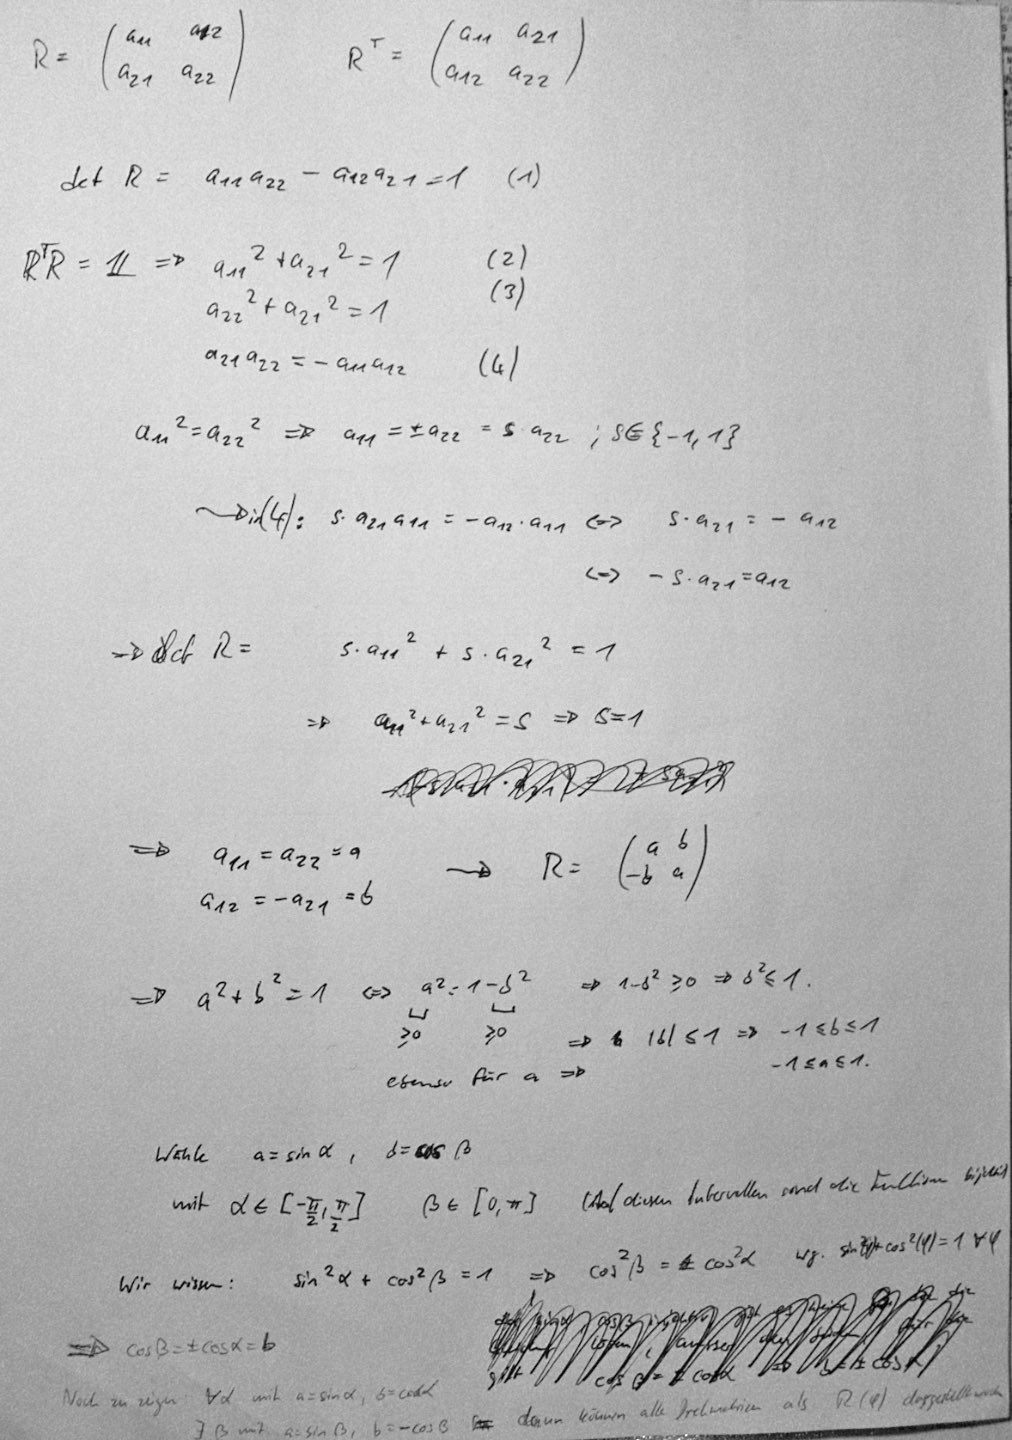 R = ( a₁₁ a₁₂ ; a₂₁ a₂₂ )   Rᵀ = ( a₁₁ a₂₁ ; a₁₂ a₂₂ )
det R = a₁₁a₂₂ − a₁₂a₂₁ = 1 (1)
RᵀR = 𝟙 ⇒ a₁₁² + a₂₁² = 1 (2)
a₂₂² + a₂₁² = 1 (3)
a₂₁a₂₂ = − a₁₁a₁₂ (4)
a₁₁² = a₂₂² ⇒ a₁₁ = ±a₂₂ = s·a₂₂ ; s∈{−1,1}
in (4): s·a₂₁a₁₁ = −a₁₂·a₁₁ ⇔ s·a₂₁ = − a₁₂
⇔ −s·a₂₁ = a₁₂
→ det R = s·a₁₁² + s·a₂₁² = 1
⇒ a₁₁² + a₂₁² = s ⇒ s=1
⇒ a₁₁ = a₂₂ = a → R = ( a b ; −b a )
a₁₂ = −a₂₁ = b
⇒ a² + b² = 1 ⇔ a² = 1 − b² ⇒ 1−b² ≥ 0 ⇒ b² ≤ 1.
≥0 ≥0 ⇒ |b| ≤ 1 ⇒ −1 ≤ b ≤ 1
ebenso für a ⇒ −1 ≤ a ≤ 1.
Wähle a = sin α, b = cos β
mit α ∈ [−π/2, π/2] β ∈ [0, π] (Auf diesen Intervallen sind die Funktionen bijektiv
Wir wissen: sin²α + cos²β = 1 ⇒ cos²β = cos²α wg. sin²(φ)+cos²(φ) = 1 ∀φ
⇒ cos β = ± cos α = b
cos β = ± cos α
Noch zu zeigen ∀α mit a = sin α, b = cos α
∃ β mit a = sin β, b = −cos β dann können alle Drehmatrizen als R(φ) dargestellt werden